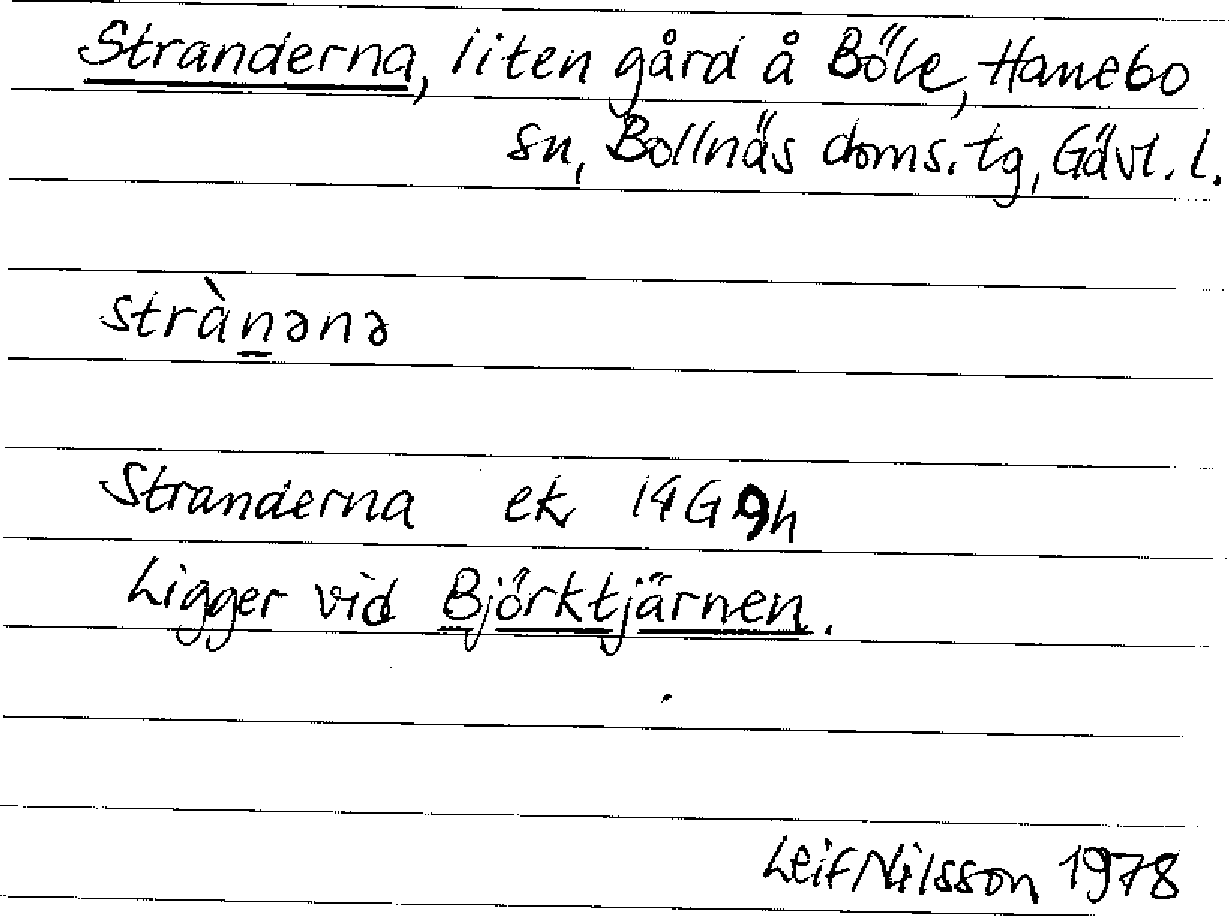 Stranderna, liten gård å Böle, Hanebo
sn, Bollnäs doms. tg, Gävl. l.
strànənə
Stranderna ek 14G 9h
Ligger vid Björktjärnen.
Leif Nilsson 1978